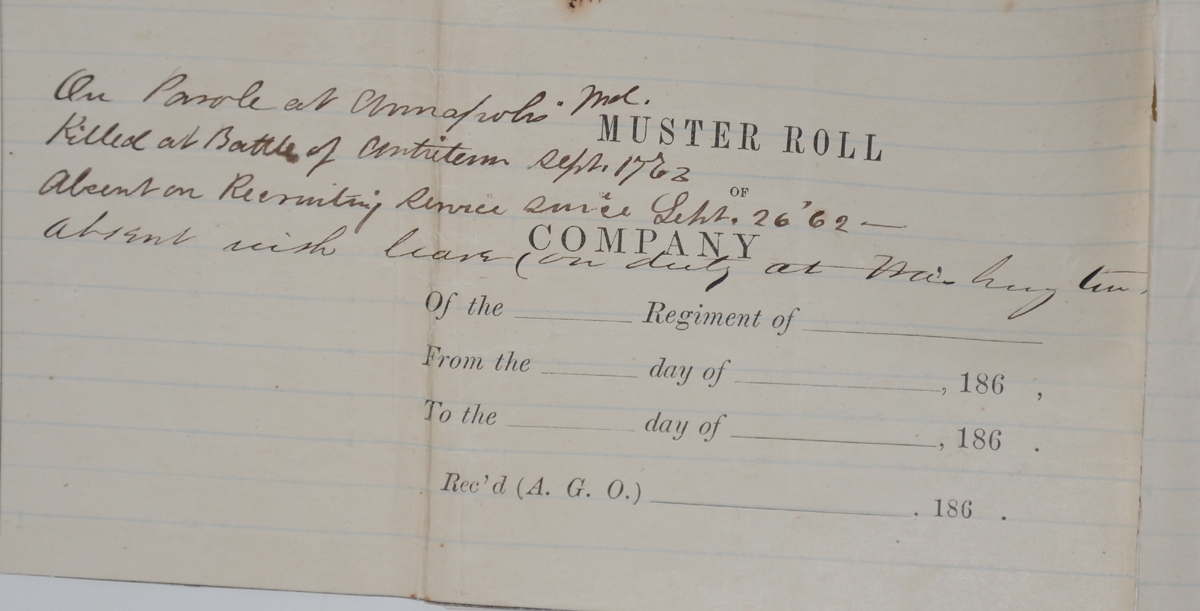 On Parole at Annapolis Md.
MUSTER ROLL
Killed at Battle of Antiitem Sept. 17 62
OF
Absent on Recruiting Service since Sept. 26 '62 —
COMPANY
absent with leave (on duty at Washington.
Of the ________ Regiment of ________
From the ________ day of ________, 186 ,
To the ________ day of ________, 186 .
Rec'd (A. G. O.) ________. 186 .